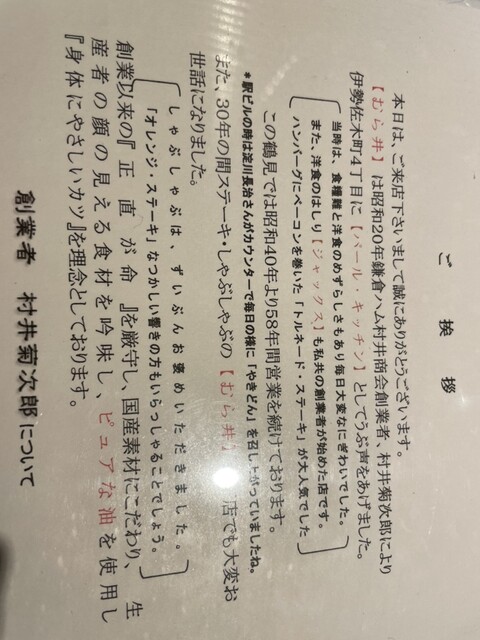 ご挨拶
本日は、ご来店下さいまして誠にありがとうございます。
【むら井】は昭和20年鎌倉ハム村井商会創業者、村井菊次郎により
伊勢佐木町4丁目に【パール・キッチン】としてうぶ声をあげました。
当時は、食糧難と洋食のめずらしさもあり毎日大変なにぎわいでした。
また、洋食のはしり【ジャックス】も私共の創業者が始めた店です。
ハンバーグにベーコンを巻いた「トルネード・ステーキ」が大人気でした
この鶴見では昭和40年より58年間営業を続けております。
*駅ビルの時は淀川長治さんがカウンターで毎日の様に「やきどん」を召し上がっていましたね。
また、30年の間ステーキ・しゃぶしゃぶの【むら井】 店でも大変お
世話になりました。
しゃぶしゃぶは、ずいぶんお褒めいただきました。
「オレンジ・ステーキ」なつかしい響きの方もいらっしゃることでしょう。
創業以来の『正直が命』を厳守し、国産素材にこだわり、生
産者の顔の見える食材を吟味し、ピュアな油を使用し
『身体にやさしいカツ』を理念としております。
創業者 村井菊次郎について